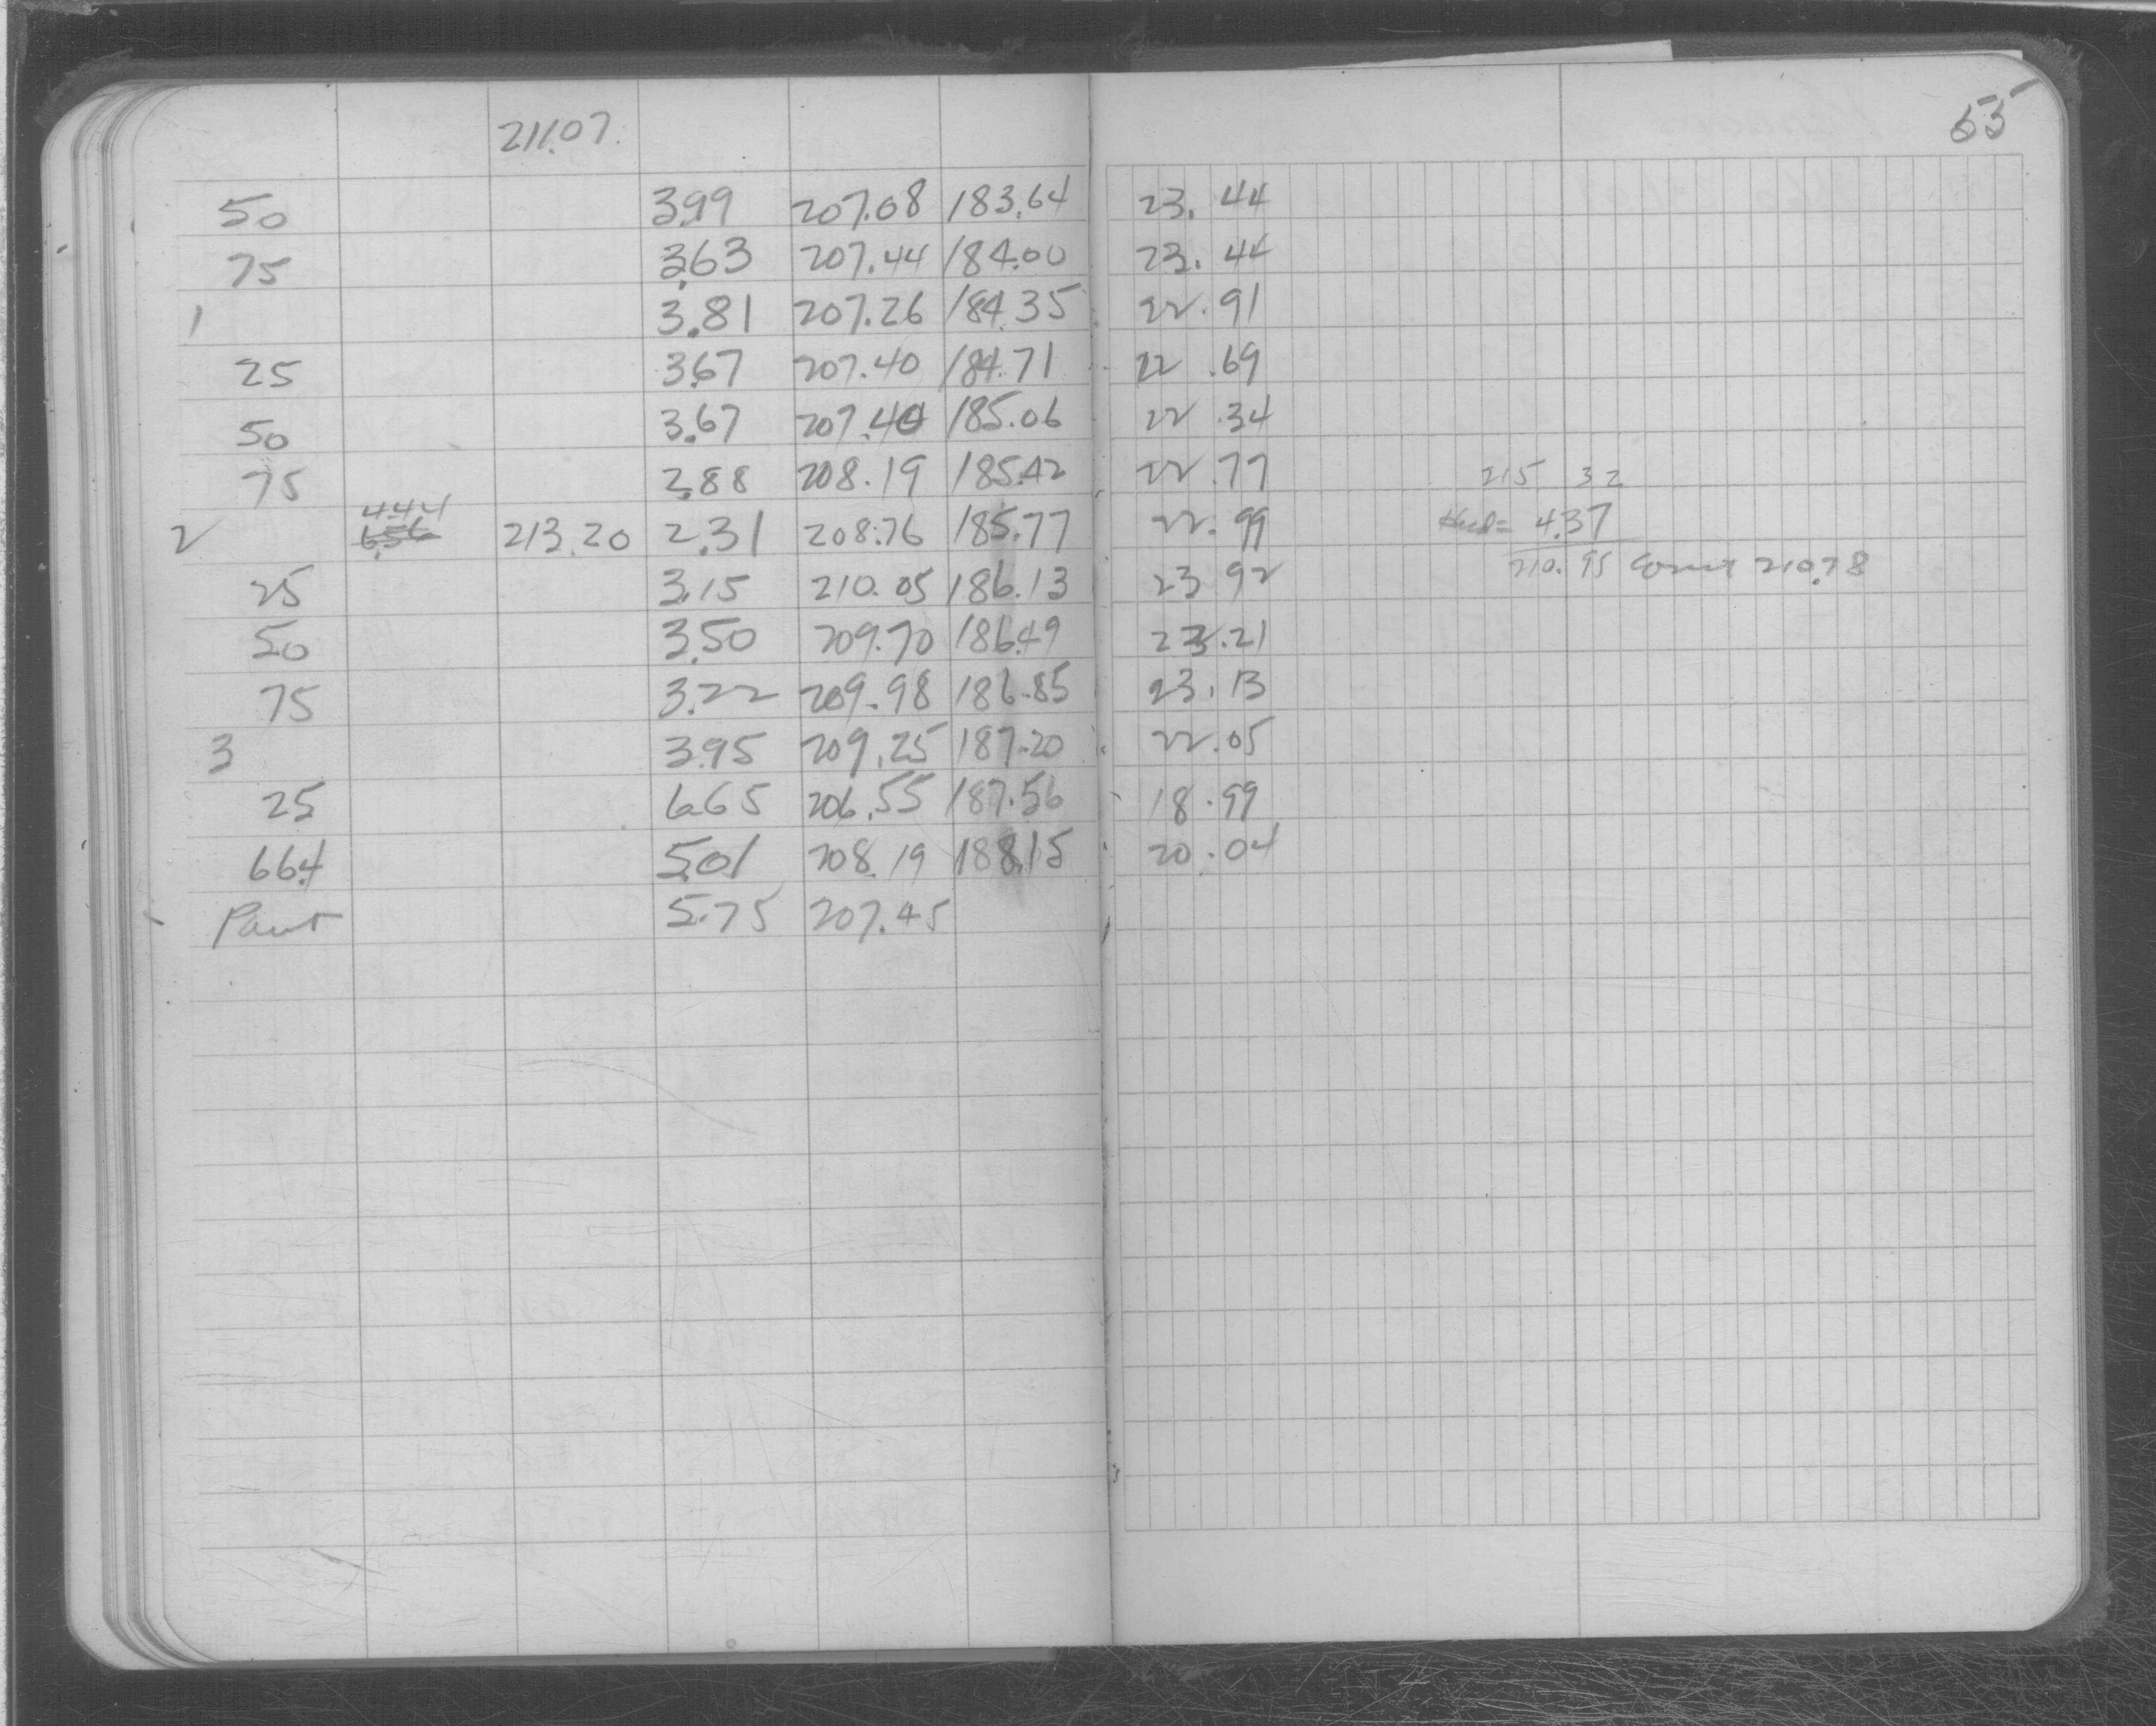 211.07. 55
50 3.99 207.08 183.64 23.44
75 3.63 207.44 184.00 23.44
1 3.81 207.26 184.35 22.91
25 3.67 207.40 184.71 22.69
50 3.67 207.40 185.06 22.34
75 2.88 208.19 185.42 22.77 215 32
4.44
2 6.56 213.20 2.31 208.76 185.77 22.99 4.37
25 3.15 210.05 186.13 23.92 210.95 210.78
50 3.50 209.70 186.49 23.21
75 3.22 209.98 186.85 23.13
3 3.95 209.25 187.20 22.05
25 6.65 206.55 187.56 18.99
66.4 5.01 208.19 188.15 20.04
5.75 207.45